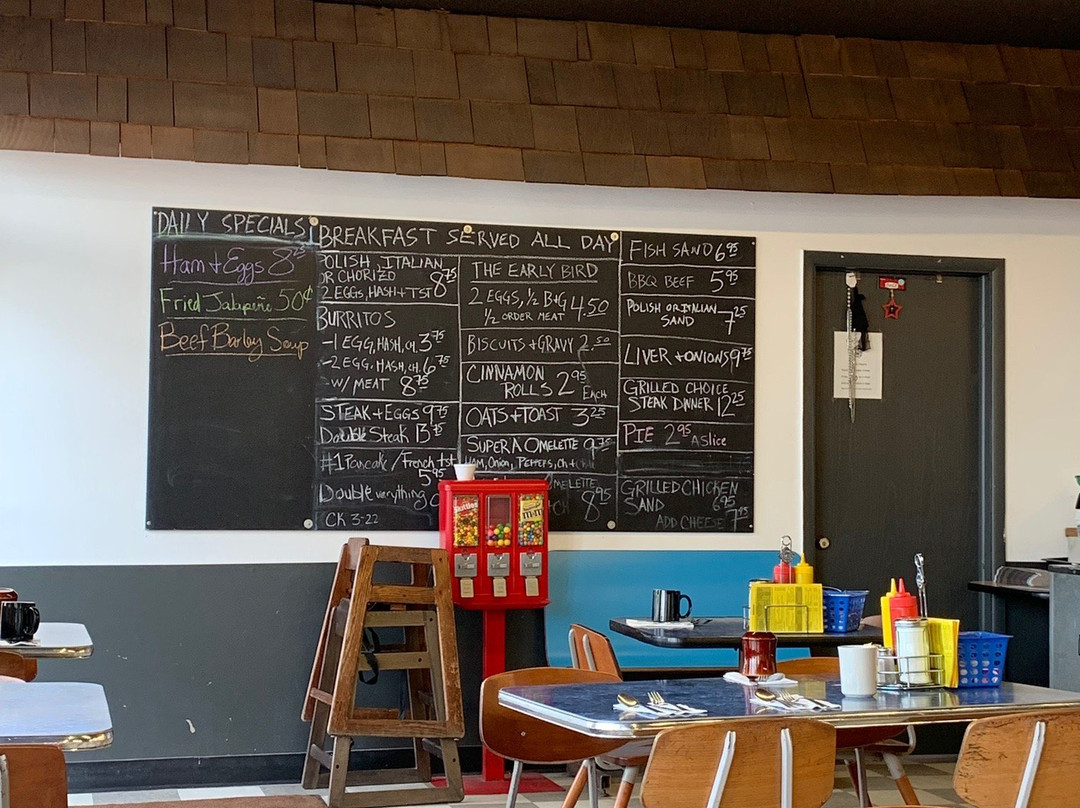 DAILY SPECIALS!
Ham + Eggs 8 25
Fried Jalapeño 50¢
Beef Barley Soup
BREAKFAST SERVED ALL DAY
POLISH, ITALIAN
OR CHORIZO 8 75
2 EGGS, HASH + TST
BURRITOS
-1 EGG, HASH, CH. 3 75
-2 EGG, HASH, CH. 6 75
-W/ MEAT 8 75
STEAK + EGGS 9 75
Double Steak 13 75
#1 Pancake / French tst
5 95
Double everything
CK 3-22
THE EARLY BIRD
2 EGGS, ½ B+G 4.50
½ ORDER MEAT
BISCUITS + GRAVY 2.50
CINNAMON
ROLLS 2 95 EACH
OATS + TOAST 3 25
SUPER A OMELETTE 9 75
HAM, Onion, PEPPERS, CH +
OMELETTE
+CH 8 95
FISH SAND 6 95
BBQ BEEF 5 95
POLISH OR ITALIAN
SAND 7 25
LIVER + ONIONS 9 75
GRILLED CHOICE
STEAK DINNER 12 25
PIE 2 95 A Slice
GRILLED CHICKEN
SAND 6 95
ADD CHEESE 7 45
Skittles
m&m's